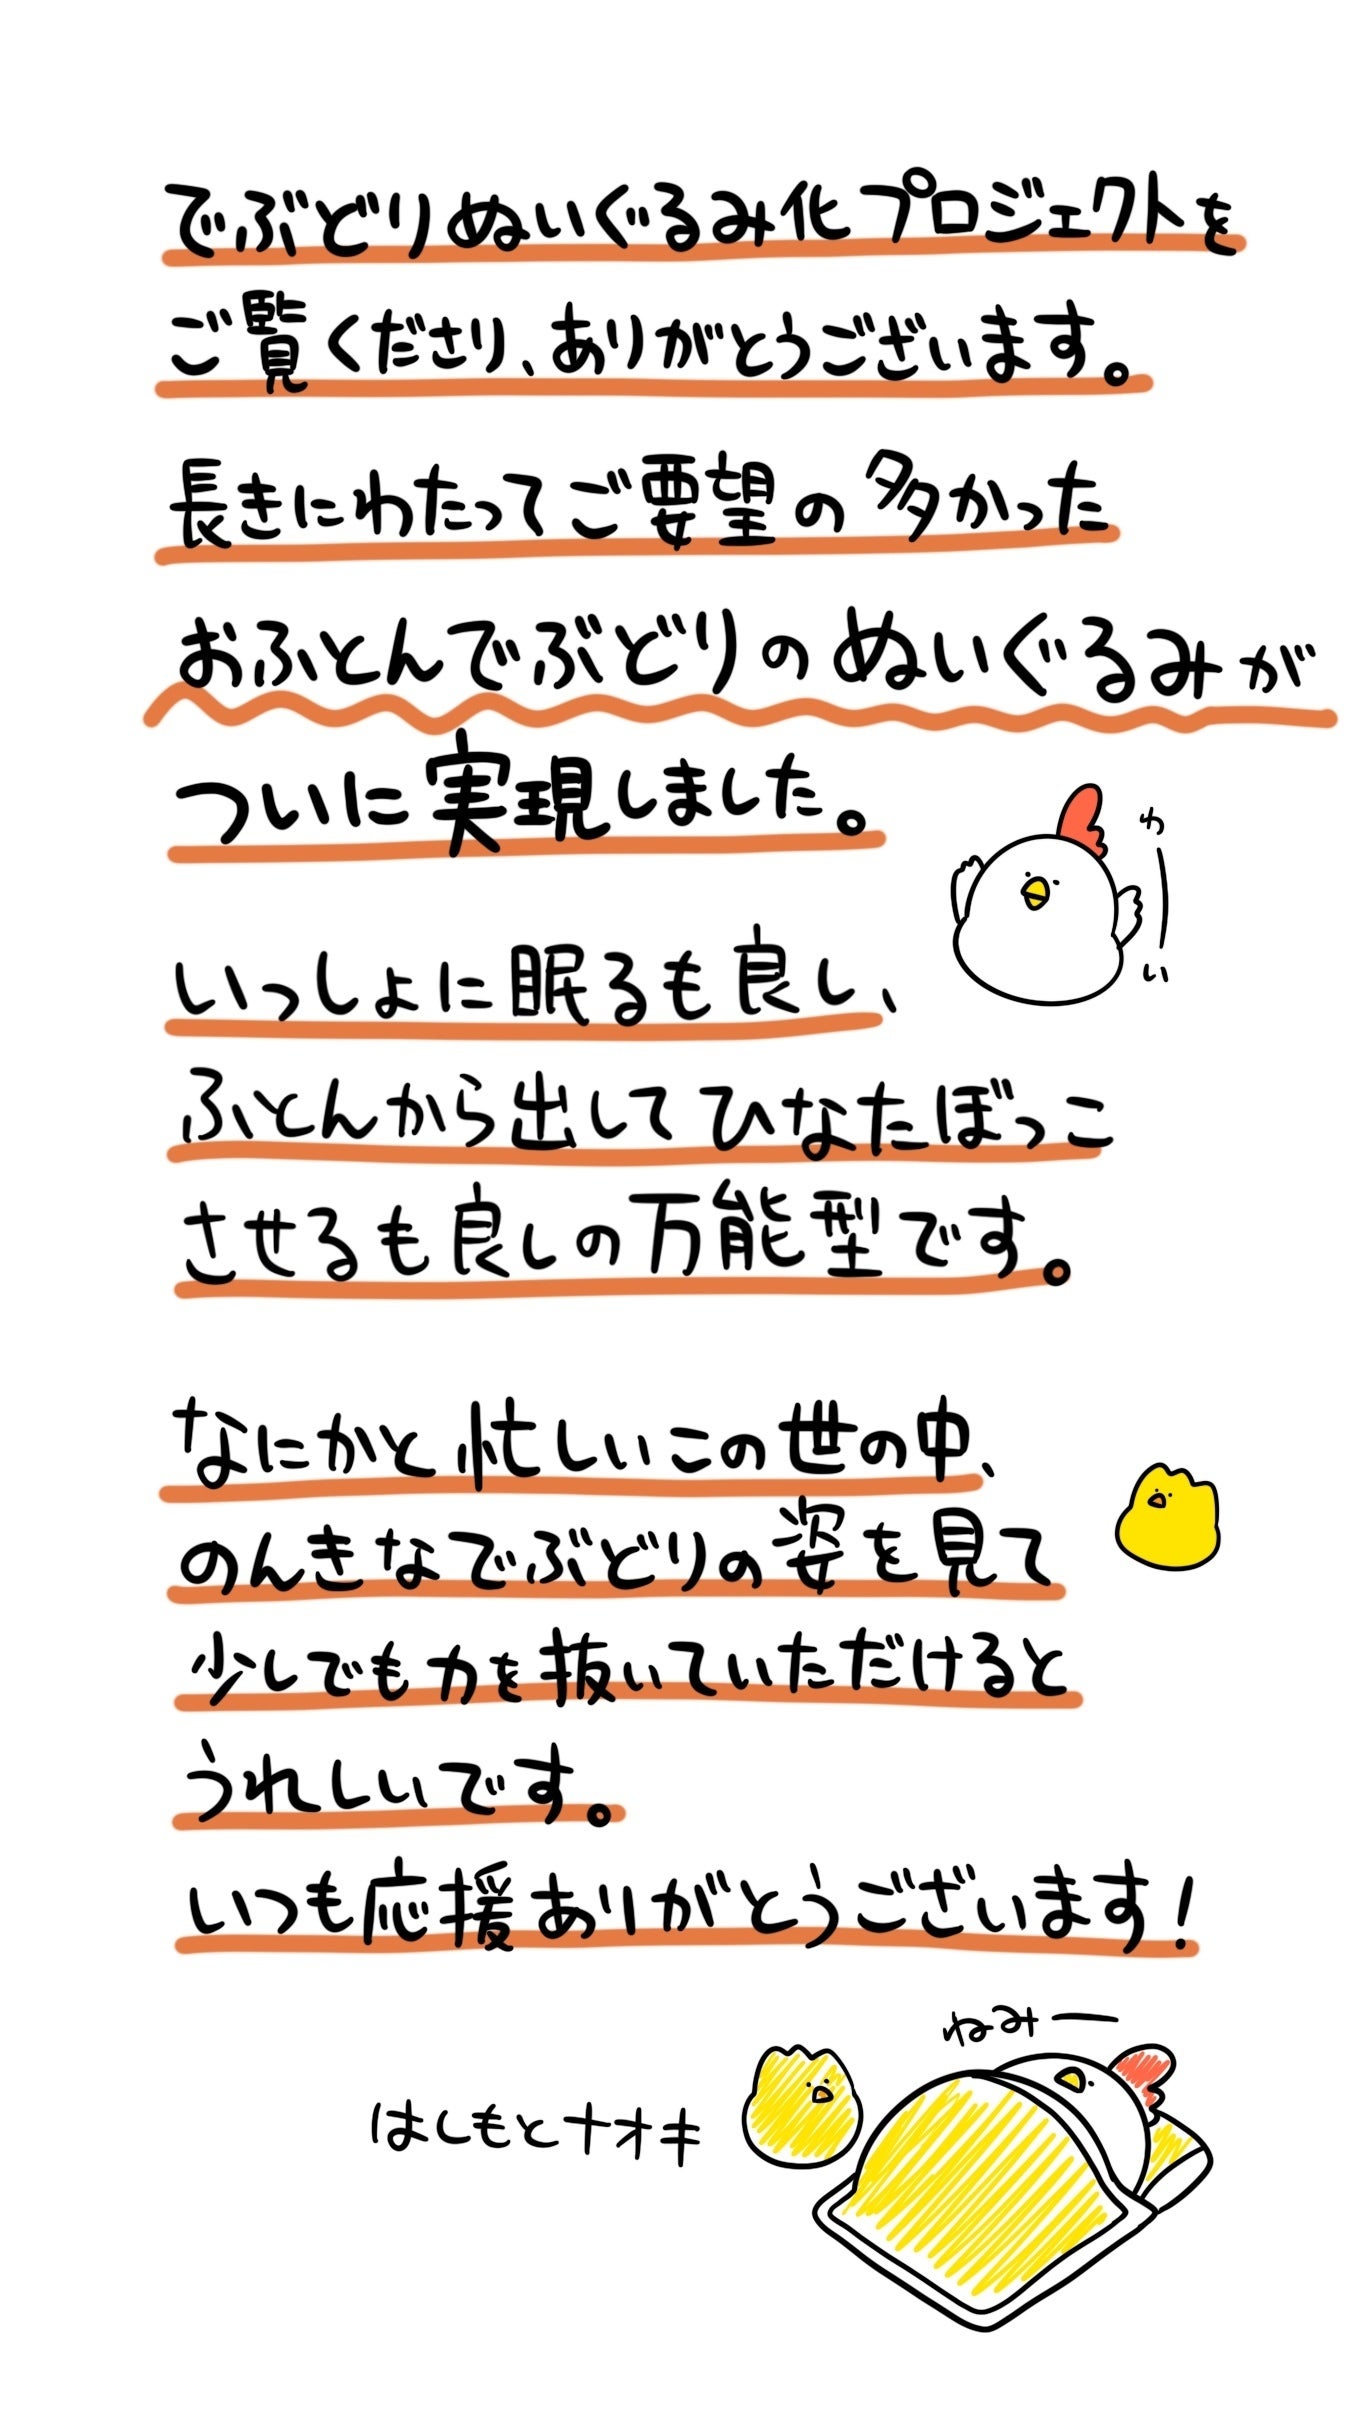 でぶどりぬいぐるみ化プロジェクトを
ご覧くださり、ありがとうございます。
長きにわたってご要望の多かった
おふとんでぶどりのぬいぐるみが
ついに実現しました。
わーい
いっしょに眠るも良し、
ふとんから出してひなたぼっこ
させるも良しの万能型です。
なにかと忙しいこの世の中、
のんきなでぶどりの姿を見て
少しでも力を抜いていただけると
うれしいです。
いつも応援ありがとうございます!
ねみー
はしもとナオキ